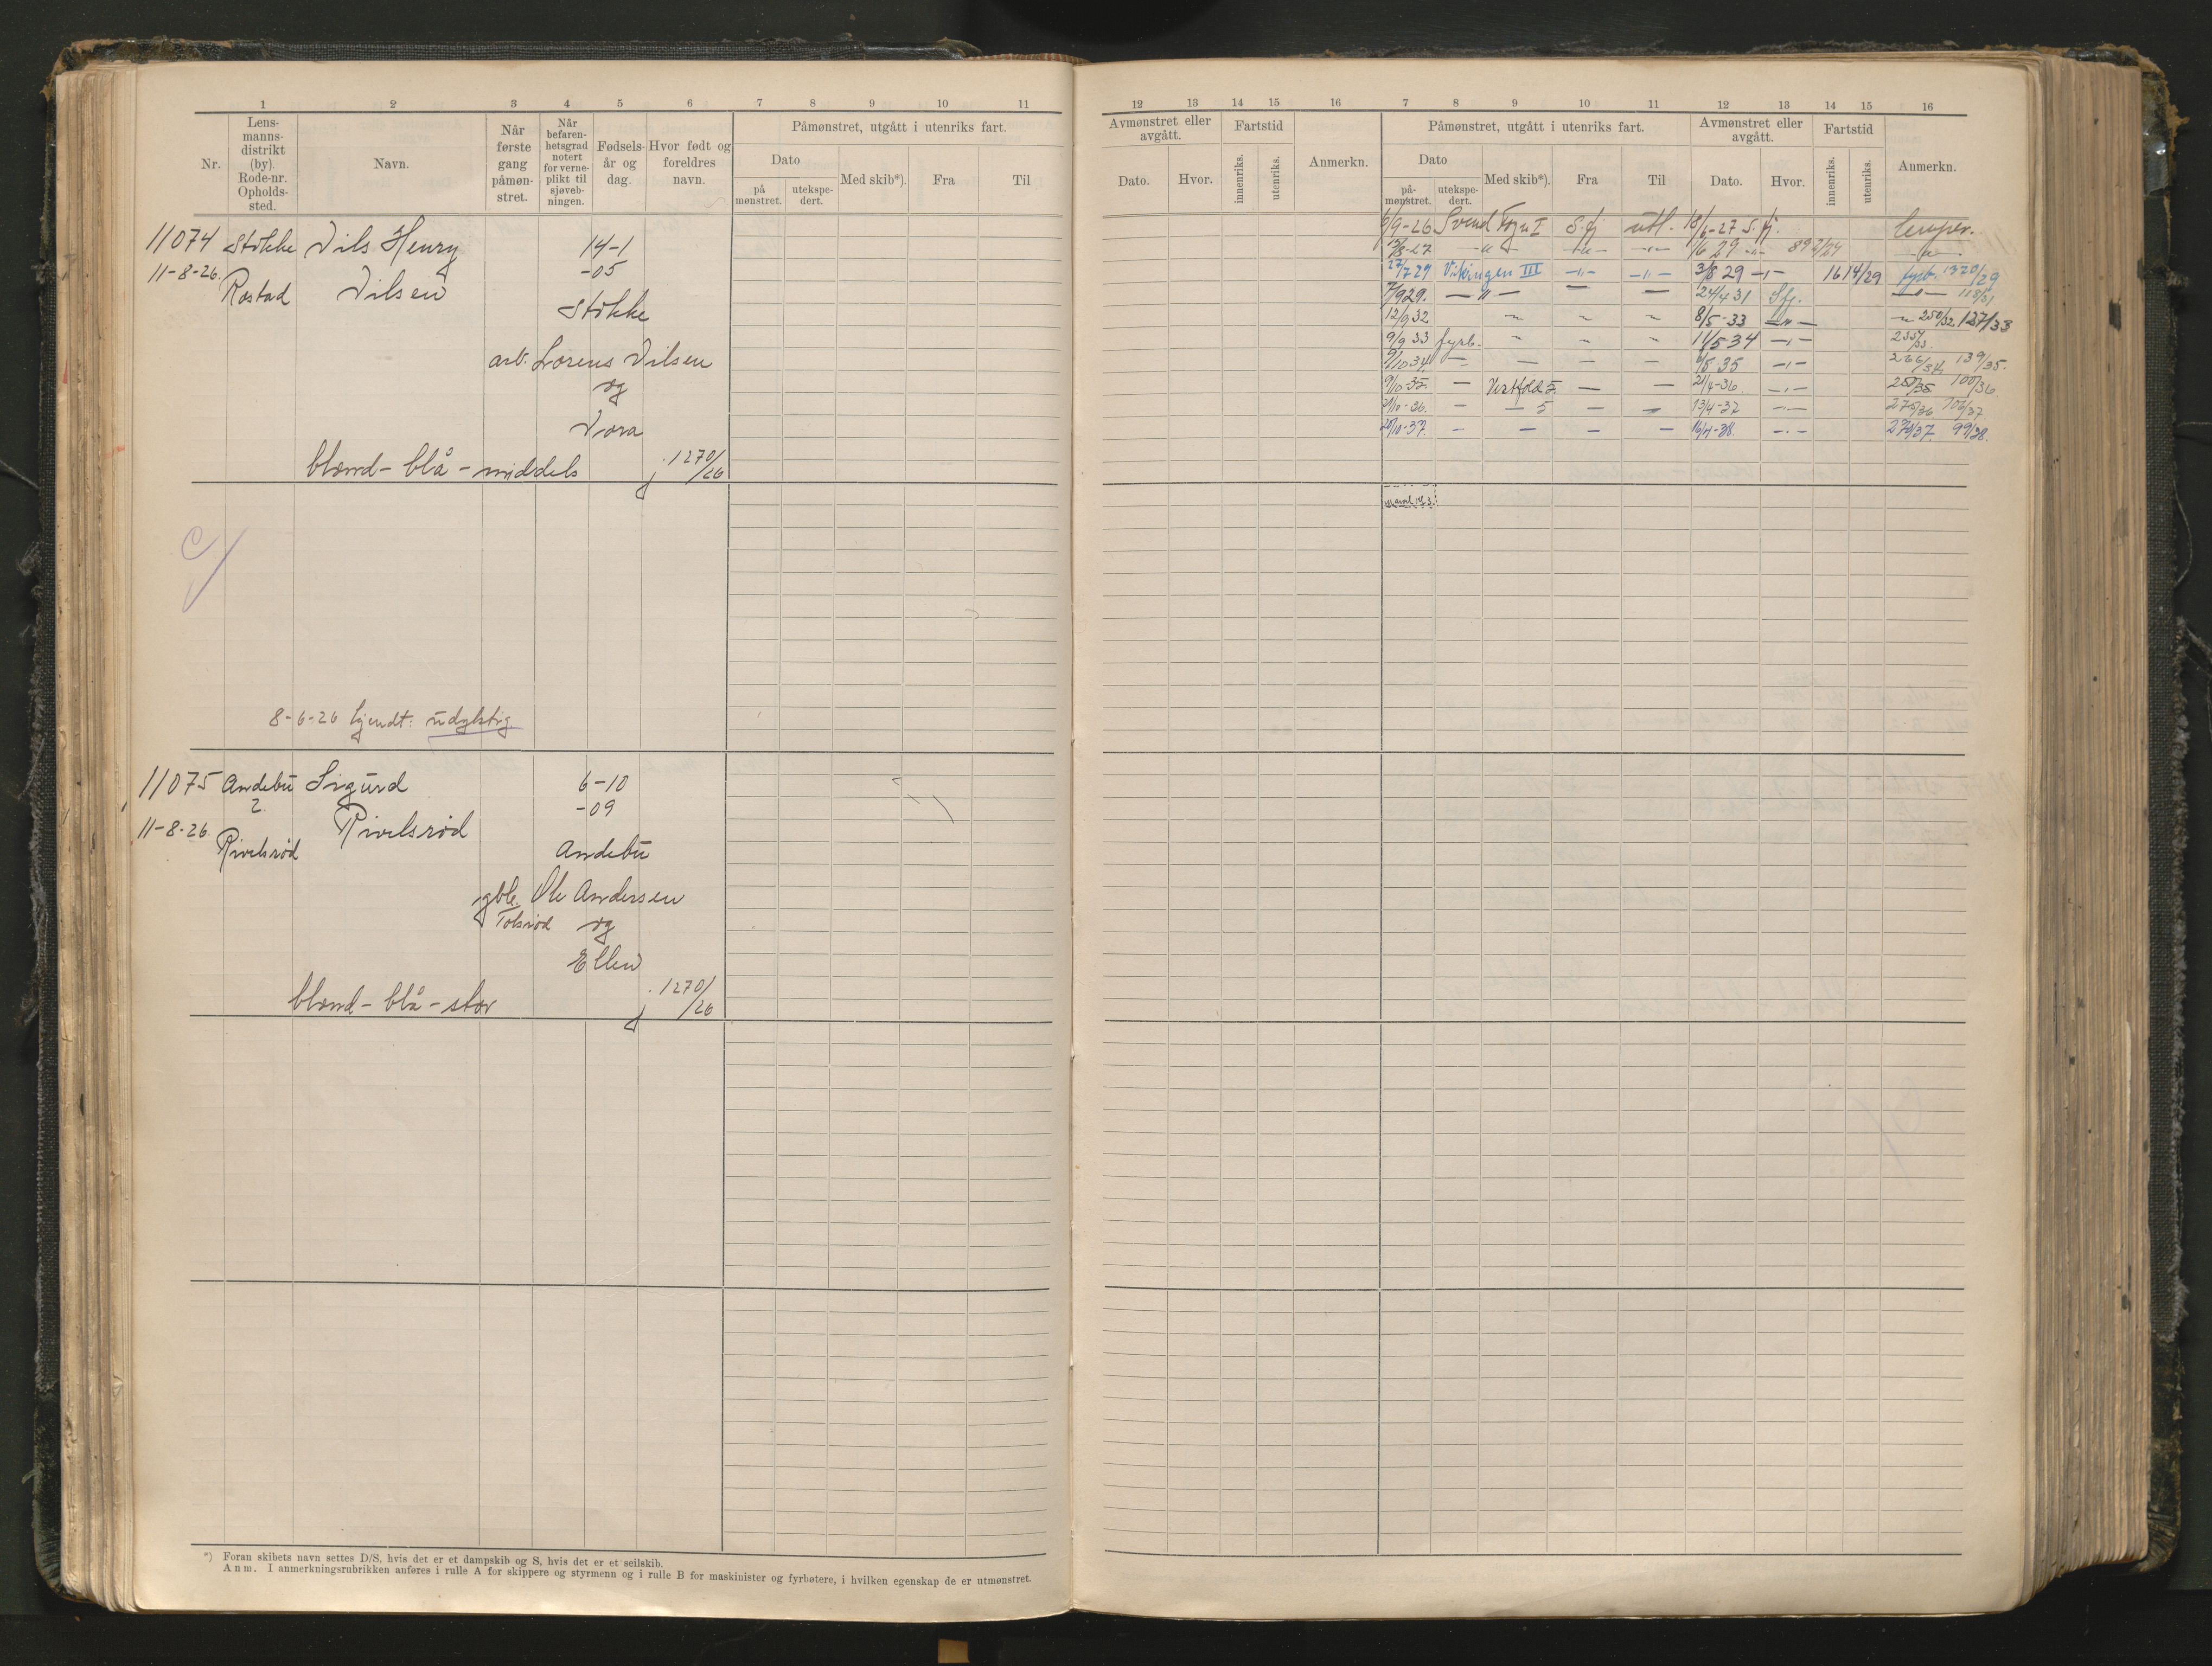 1 2 3 4 5 6 7 8 9 10 11
Nr.
Lens-
manns-
distrikt
(by).
Rode-nr.
Opholds-
sted.
Navn.
Når
første
gang
påmøn-
stret.
Når
befaren-
hetsgrad
notert
for verne-
plikt til
sjøveb-
ningen.
Fødsels-
år og
dag.
Hvor født og
foreldres
navn.
Påmønstret, utgått i utenriks fart.
Dato
på
mønstret.
utekspe-
dert.
Med skib*).
Fra
Til
11074 Stokke Nils Henry 14-1
11-8-26. Rostad Nilsen -05
Stokke
arb. Lorens Nilsen
og
Nora
blond - blå - middels j. 1270/26
8-6-26 kjendt: udyktig
11075 Andebu Sigurd 6-10
2. -09
11-8-26. Rivelsrød
Rivelsrød Andebu
gbr. Ole Andersen
Tolsrød og
Ellen
blond - blå - stor j. 1270/26
*) Foran skibets navn settes D/S, hvis det er et dampskib og S, hvis det er et seilskib.
Anm. I anmerkningsrubrikken anføres i rulle A for skippere og styrmenn og i rulle B for maskinister og fyrbøtere, i hvilken egenskap de er utmønstret.
12 13 14 15 16 7 8 9 10 11 12 13 14 15 16
Avmønstret eller
avgått.
Dato.
Hvor.
Fartstid
innenriks.
utenriks.
Anmerkn.
Påmønstret, utgått i utenriks fart.
Dato
på-
mønstret.
utekspe-
dert.
Med skib*).
Fra
Til
Avmønstret eller
avgått.
Dato.
Hvor.
Fartstid
innenriks.
utenriks.
Anmerkn.
6/9-26 Svend Foyn I S.fj utl. 18/6-27 S.fj. lemper.
-27 -"- -"- -"- 1/6 29 -"- -"-
27/7 29 Vikingen III -"- -"- 3/8 29 -"- 1614/29 fyrb. 1370/29
/9 29. -"- - - 24/4 31 Sfj. -"- 118/31
12/9 32 8/5-33 -"- 250/32 137/33
9/9 33 fyrb. 11/5 34 -"- 235/33.
9/10 34 - - - - 6/5 35 -"- 266/34 139/35.
9/10-35. - Vestfold 5. - - 21/4-36 -"- 250/35 100/36
21/10-36. - - 5 - - 13/4-37 -"- 275/36 106/37
20/10-37. - - - - 16/4-38. -"- 274/37 99/38.